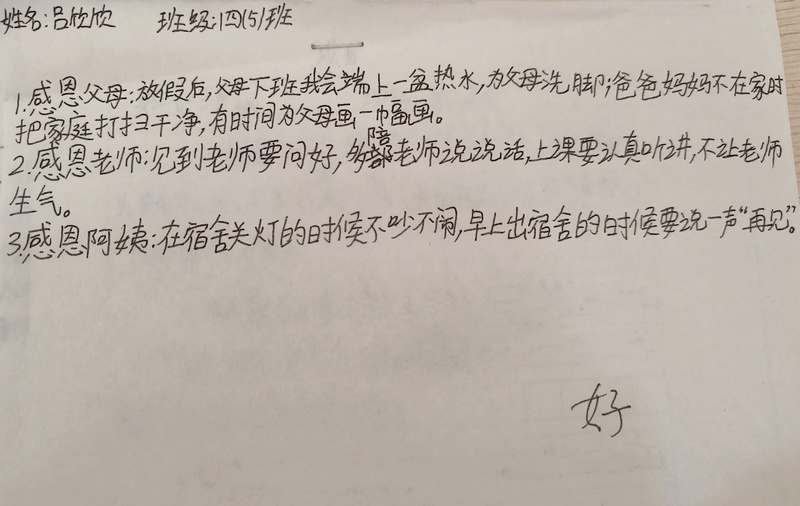 姓名:吕欣欣 班级:四(5)班
1.感恩父母:放假后,父母下班我会端上一盆热水,为父母洗脚;爸爸妈妈不在家时
把家庭打扫干净,有时间为父母画一幅画。
2.感恩老师:见到老师要问好,多陪老师说说话,上课要认真听讲,不让老师
生气。
3.感恩阿姨:在宿舍关灯的时候不吵不闹,早上出宿舍的时候要说一声“再见”。
好